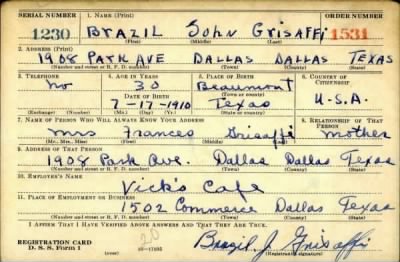 SERIAL NUMBER 1. NAME (Print) ORDER NUMBER
1230 BRAZIL JOHN GRISAFFI 1531
(First) (Middle) (Last)
2. ADDRESS (Print)
1908 PARK AVE DALLAS DALLAS TEXAS
(Number and street or R. F. D. number) (Town) (County) (State)
3. TELEPHONE 4. AGE IN YEARS 5. PLACE OF BIRTH 6. COUNTRY OF CITIZENSHIP
No 30 Beaumont
(Town or county)
DATE OF BIRTH
7-17-1910 Texas U.S.A.
(Exchange) (Number) (Mo.) (Day) (Yr.) (State or country)
7. NAME OF PERSON WHO WILL ALWAYS KNOW YOUR ADDRESS 8. RELATIONSHIP OF THAT PERSON
Mrs Frances Grisaffi Mother
(Mr., Mrs., Miss) (First) (Middle) (Last)
9. ADDRESS OF THAT PERSON
1908 Park Ave. Dallas Dallas Texas
(Number and street or R. F. D. number) (Town) (County) (State)
10. EMPLOYER'S NAME
Vick's Cafe
11. PLACE OF EMPLOYMENT OR BUSINESS
1502 Commerce Dallas Texas
(Number and street or R. F. D. number) (Town) (County) (State)
I AFFIRM THAT I HAVE VERIFIED ABOVE ANSWERS AND THAT THEY ARE TRUE.
REGISTRATION CARD
D. S. S. Form 1 20 Brazil J. Grisaffi
(Registrant's signature)